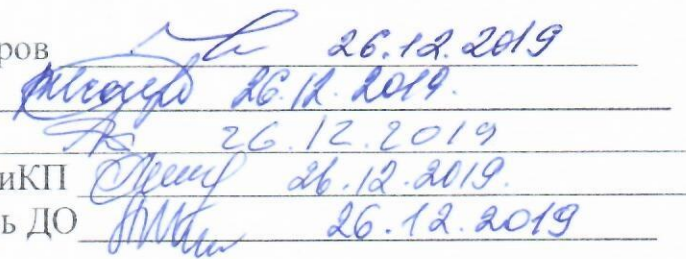 ров 26.12.2019
26.12.2019.
26.12.2019
иКП 26.12.2019.
ь ДО 26.12.2019